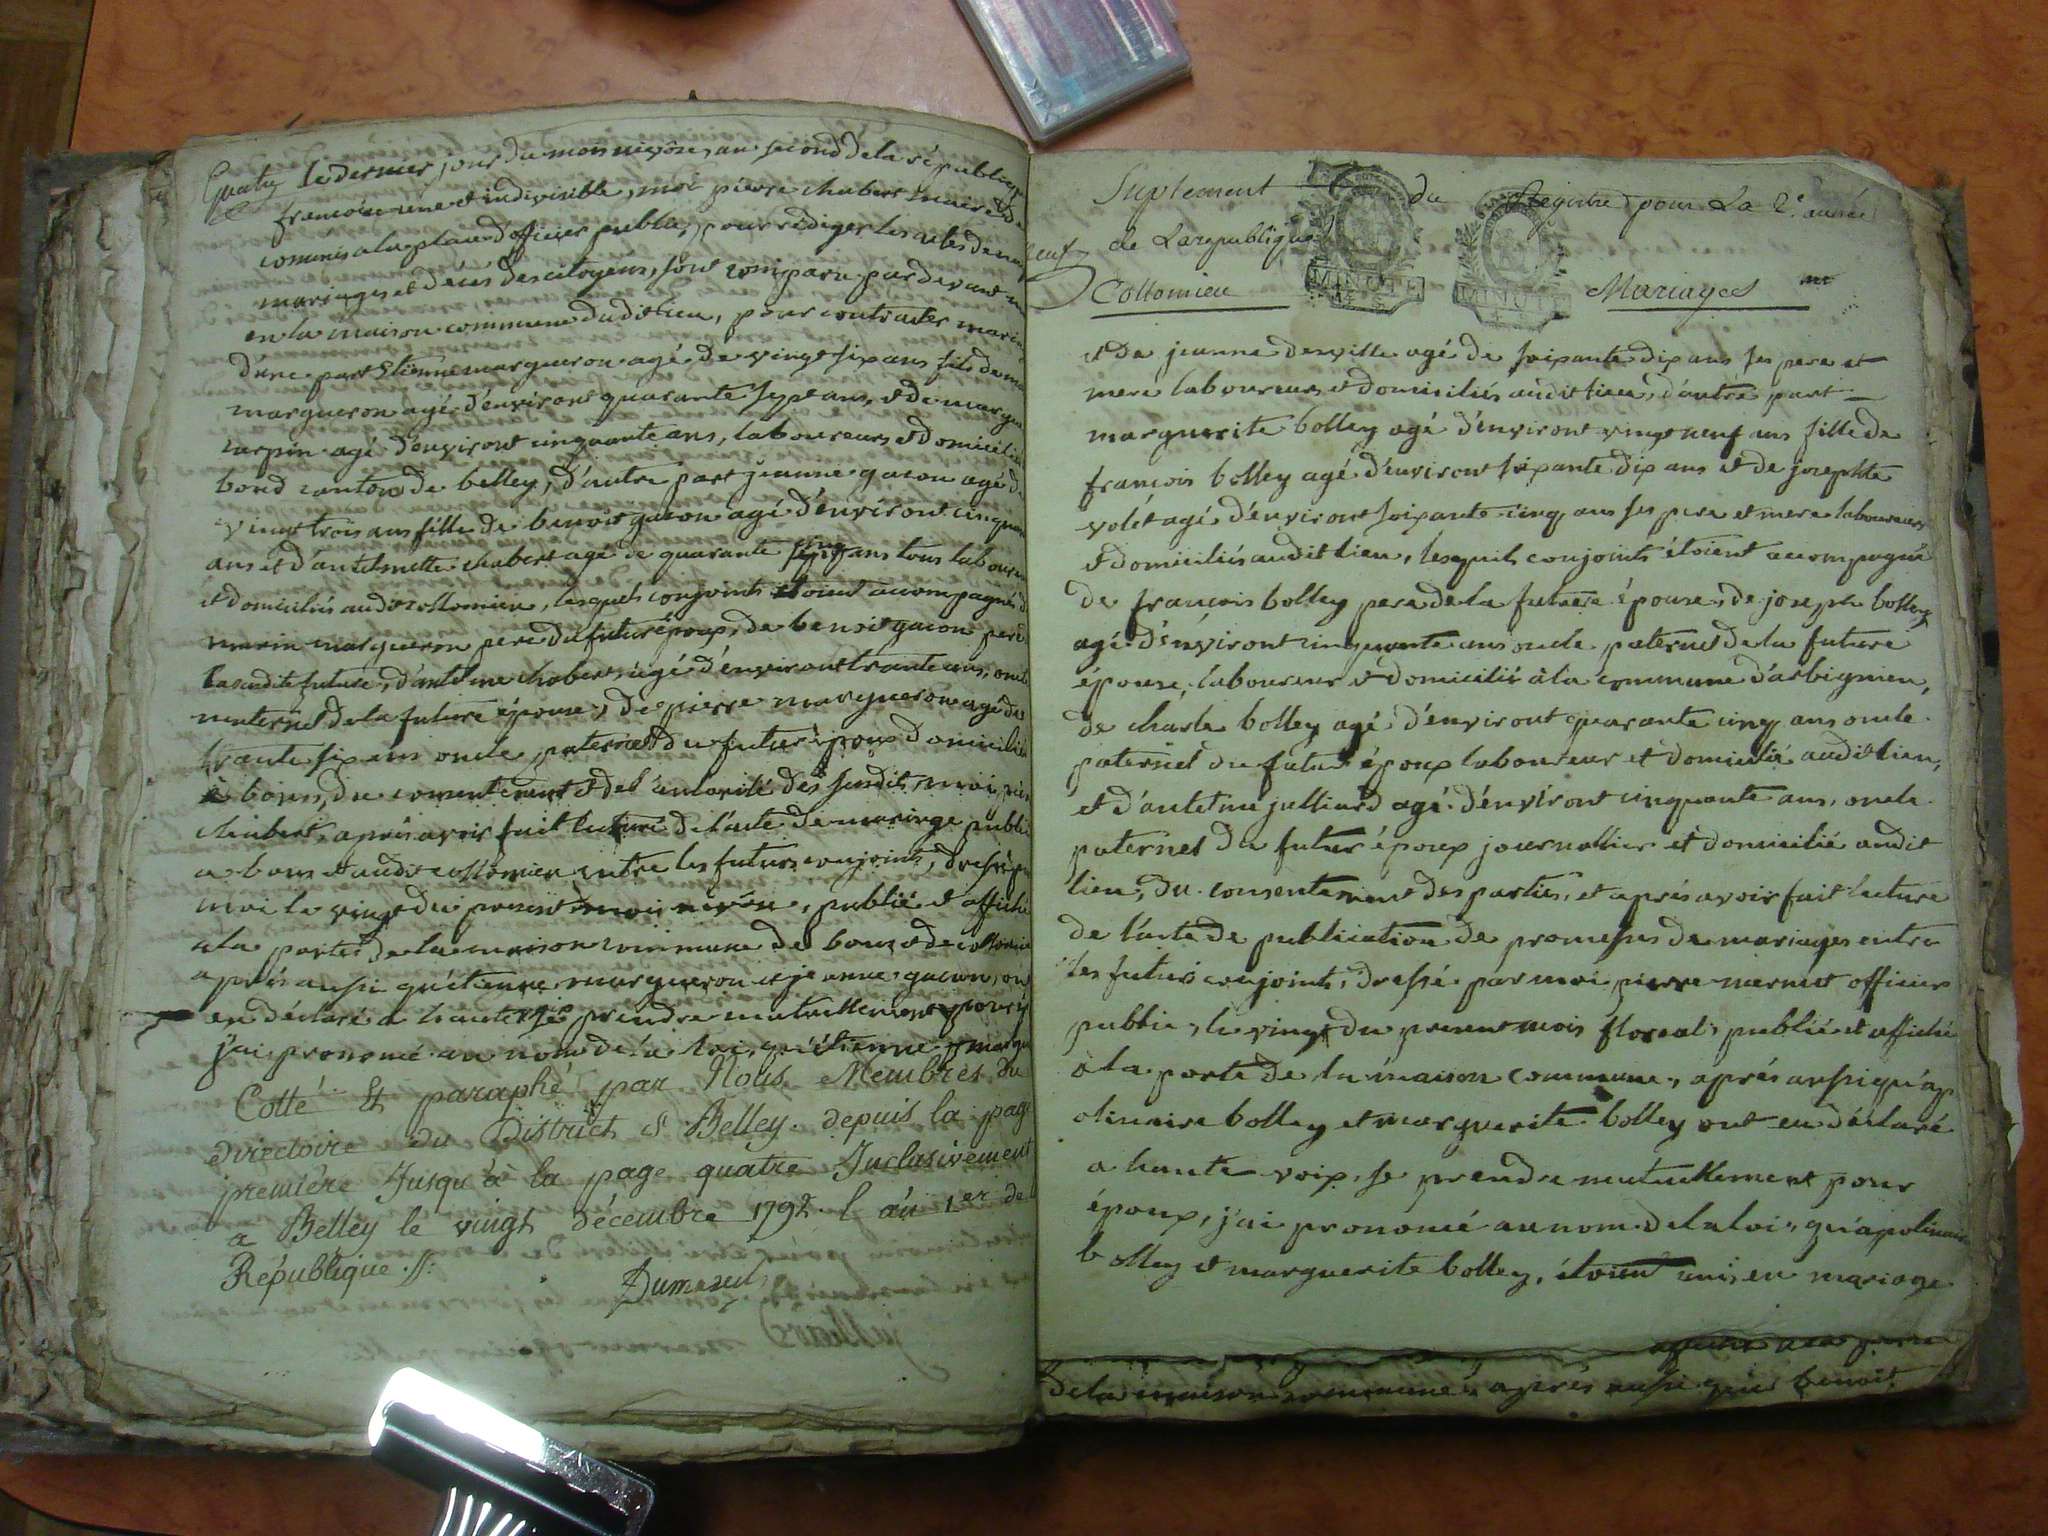 Quatre le dernier jour du mois nivôse, an second de la république
francoise une et indivisible, moi pierre chabert maire
commis a la place d'officier public, pour rédiger les actes de
mariages et décés des citoyens, sont comparu par devant
en la maison commune dudit lieu, pour contracter
d'une part Etienne margueron agé de vingt six ans fils de
margueron agé d'environt quarante sept ans, et de
carpin agé d'environt cinquante ans, laboureurs et domicilié
canton de belley, d'autre part jeanne gacon agé de
vingt trois ans fille de benoit gacon agé d'environt
ans et d'antelmette chabert agé de quarante cinq ans tous
et domiciliés audit collomieu, lesquels conjoints etoient accompagnés
marin margueron pere du futur époux, de benoit gacon pere
la sudite future, d'antelme chabert agé d'environt trante ans, oncle
maternel de la future épouse, de pierre margueron agé de
trante six ans oncle paternel du futur époux domicilié
à bons, du consentement et de l'autorité des susdits, moi
chabert, après avoir fait lecture de l'acte de mariage publié
a bons et audit collomieu entre les futurs conjoints, dressé
moi le vingt du present mois nivôse, publié et affiché
a la porte de la maison commune de bons et de collomieu
après aussi qu'étienne margueron et jeanne gacon, ont
en déclaré a haute voix prendre mutuellement
j'ai prononcé au nom de la loi, qu'étienne
Cotté Et paraphé par Nous Membres du
directoire du District de Belley. depuis la page
première Jusqu'à la page quatre Inclusivement
a Belley le vingt décembre 1792. l'an 1er de
République.
Suplement du Registre pour La 2e année
de La république
Collomieu MINUTE MINUTE Mariages
et de jeanne derville agé de soixante dix ans ses pere et
mere laboureurs et domiciliés audit lieu, d'autre part
marguerite bolley agé d'environt vingt neuf ans fille de
françois bolley agé d'environt soixante dix ans et de josephte
volet agé d'environt soixante cinq ans ses pere et mere laboureurs
et domiciliés audit lieu, lesquels conjoints étoient accompagné
de françois bolley pere de la future épouse, de joseph bolley
agé d'environt cinquante ans oncle paternel de la future
épouse, laboureur et domicilié à la commune d'arbignieu,
de charle bolley agé d'environt quarante cinq ans oncle
paternel du futur époux laboureur et domicilié audit lieu,
et d'antelme julliard agé d'environt cinquante ans, oncle
paternel du futur époux journallier et domicilié audit
lieu, du consentement des parties, et après avoir fait lecture
de l'acte de publication de promesses de mariages entre
les futurs conjoints, dressé par moi pierre officier
public, le vingt du present mois floreal, publié et affiché
a la porte de la maison commune, après aussi qu'ap
olinaire bolley et marguerite bolley ont eu déclaré
a haute voix, se prendre mutuellement pour
époux, j'ai prononcé au nom de la loi, qu'apolinaire
bolley et marguerite bolley, étoient unis en mariage
de la maison commune, après aussi que benoit